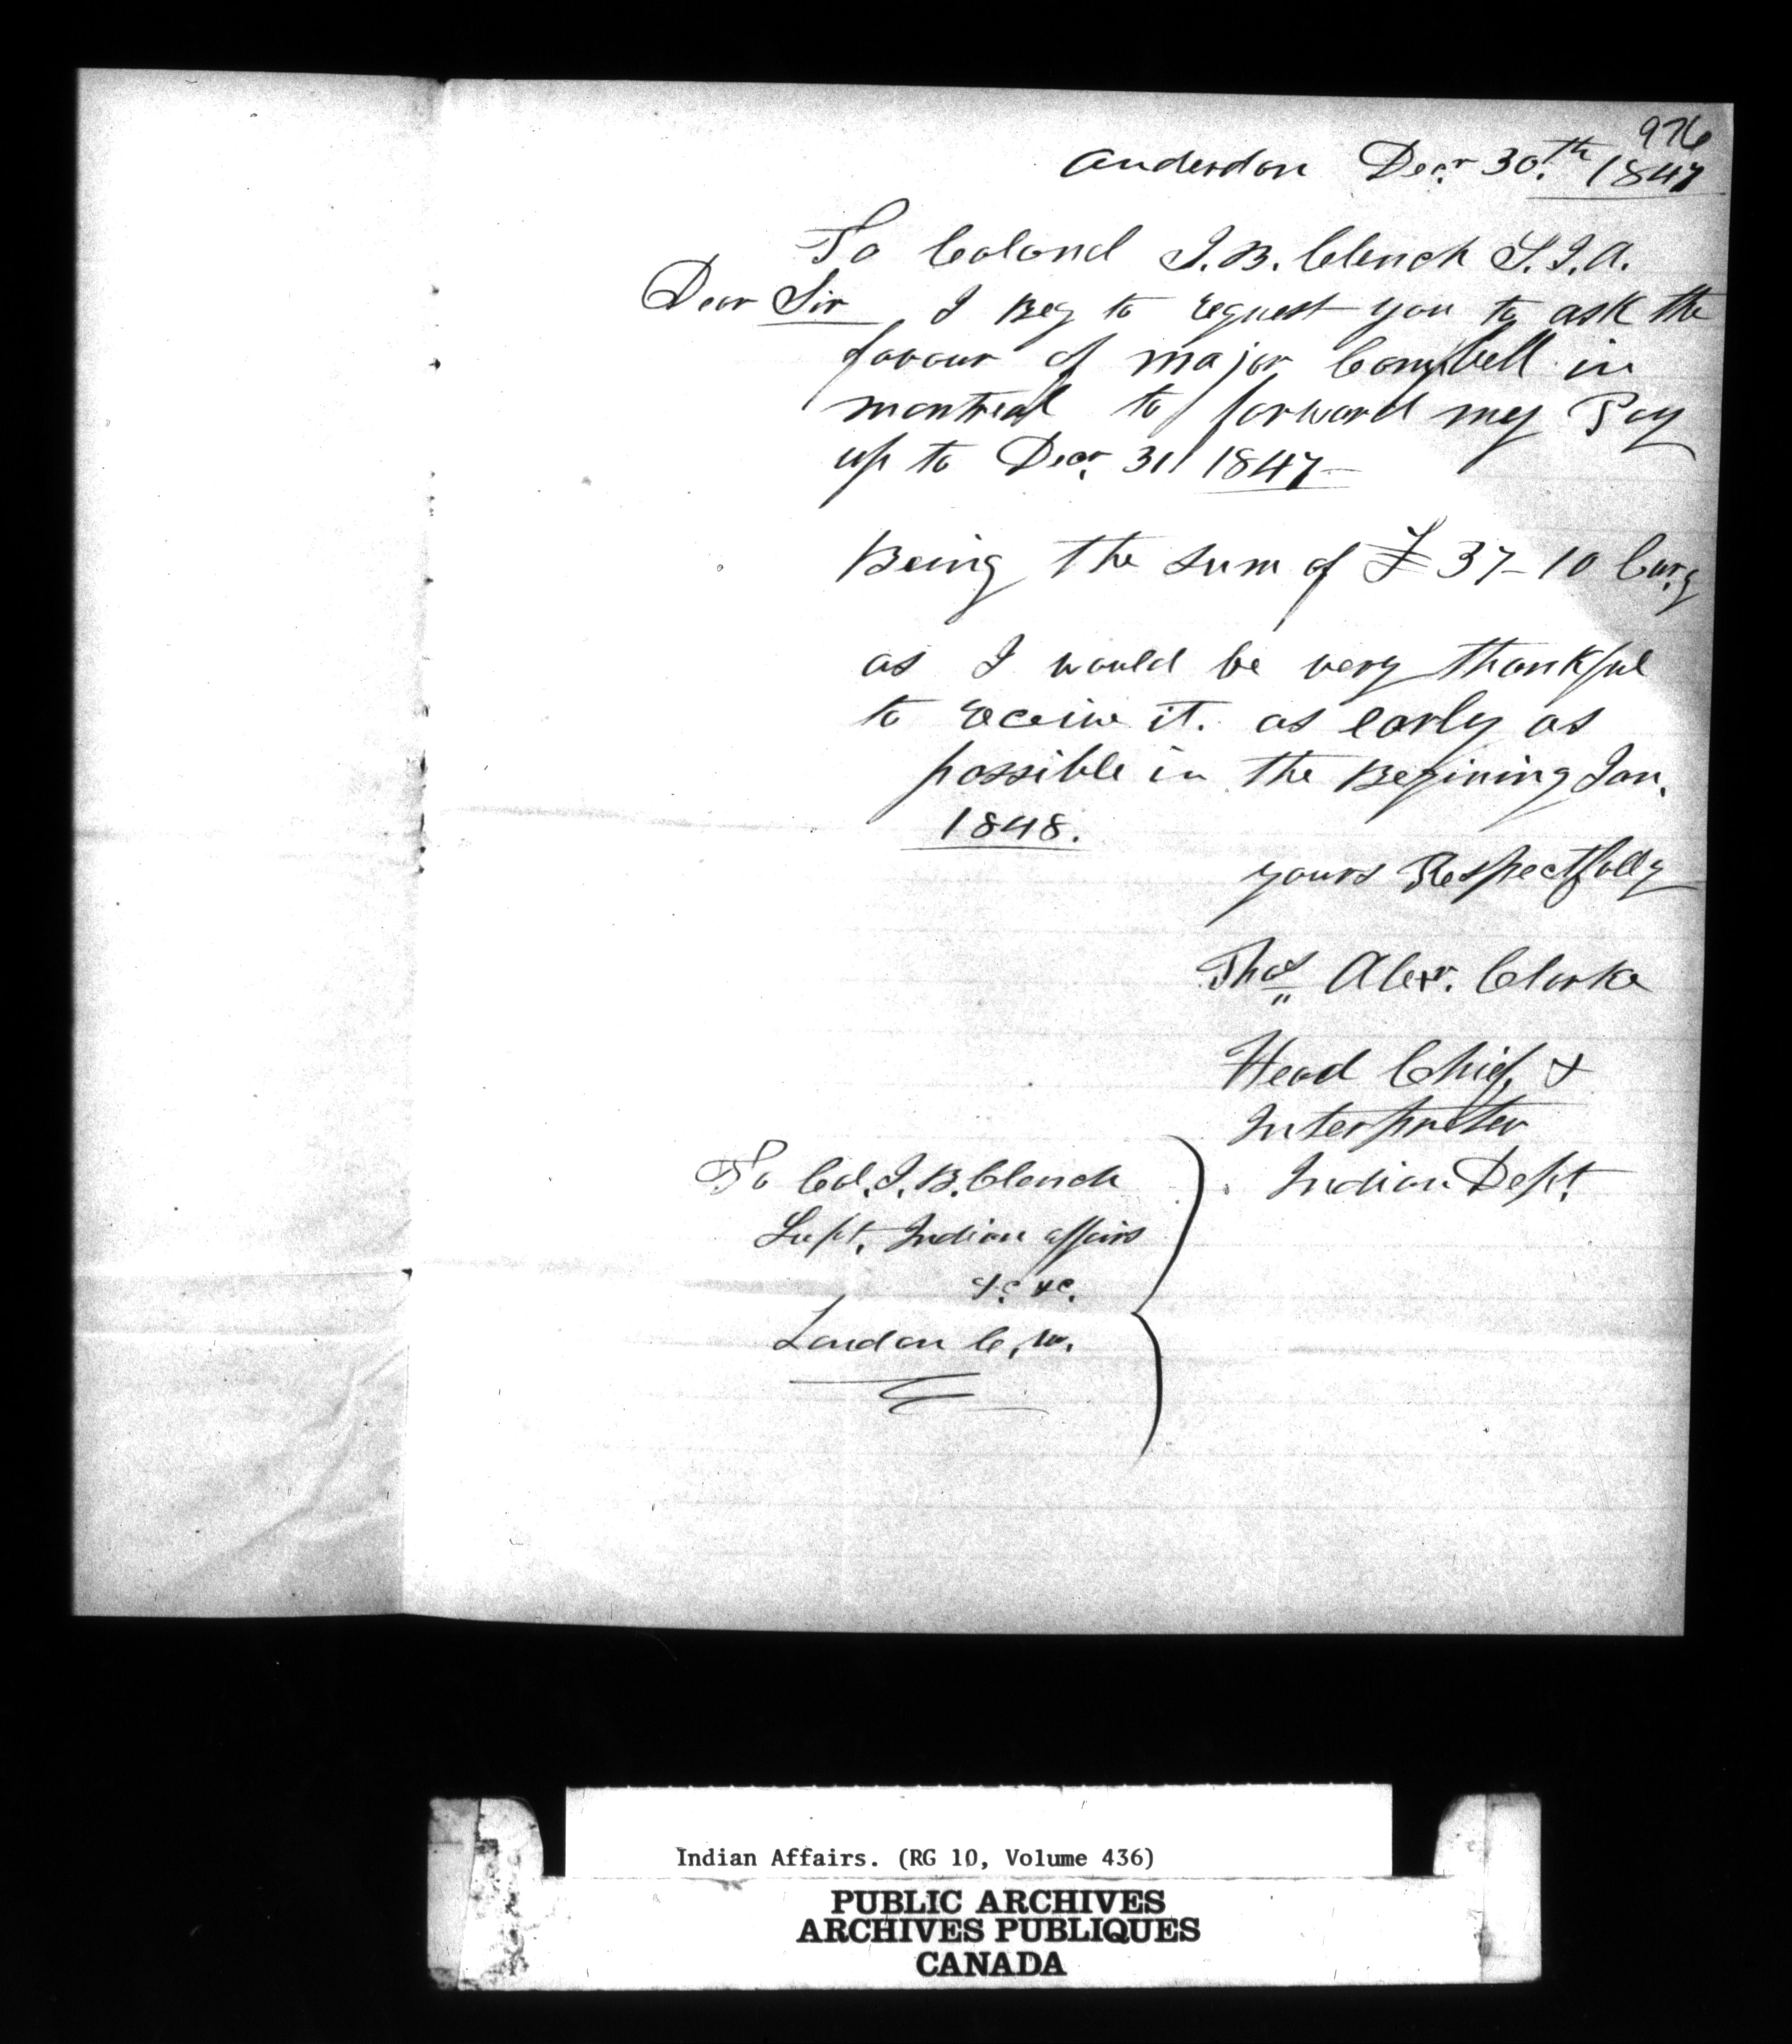 976
Anderdon Decr 30th 1847
To Colonel J.B. Clench S.I.A.
Dear Sir I Beg to request you to ask the
favour of major Campbell in
montreal to forward my Pay
up to Decr 31 1847-
Being the sum of £37-10 Curcy
as I would be very thankful
to receive it. as early as
possible in the Begining Jan.
1848.
yours Respectfully
Thos Alexr. Clarke
Head Chief &
Interpreter
Indian Dept.
To Col. J.B. Clench
Supt. Indian affairs
&c &c.
London C.W.
Indian Affairs. (RG 10, Volume 436)
PUBLIC ARCHIVES
ARCHIVES PUBLIQUES
CANADA